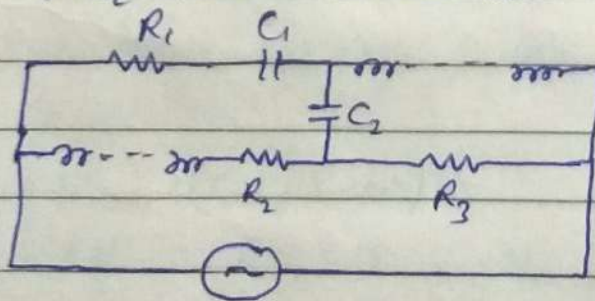 R₁ C₁
C₂
R₂ R₃